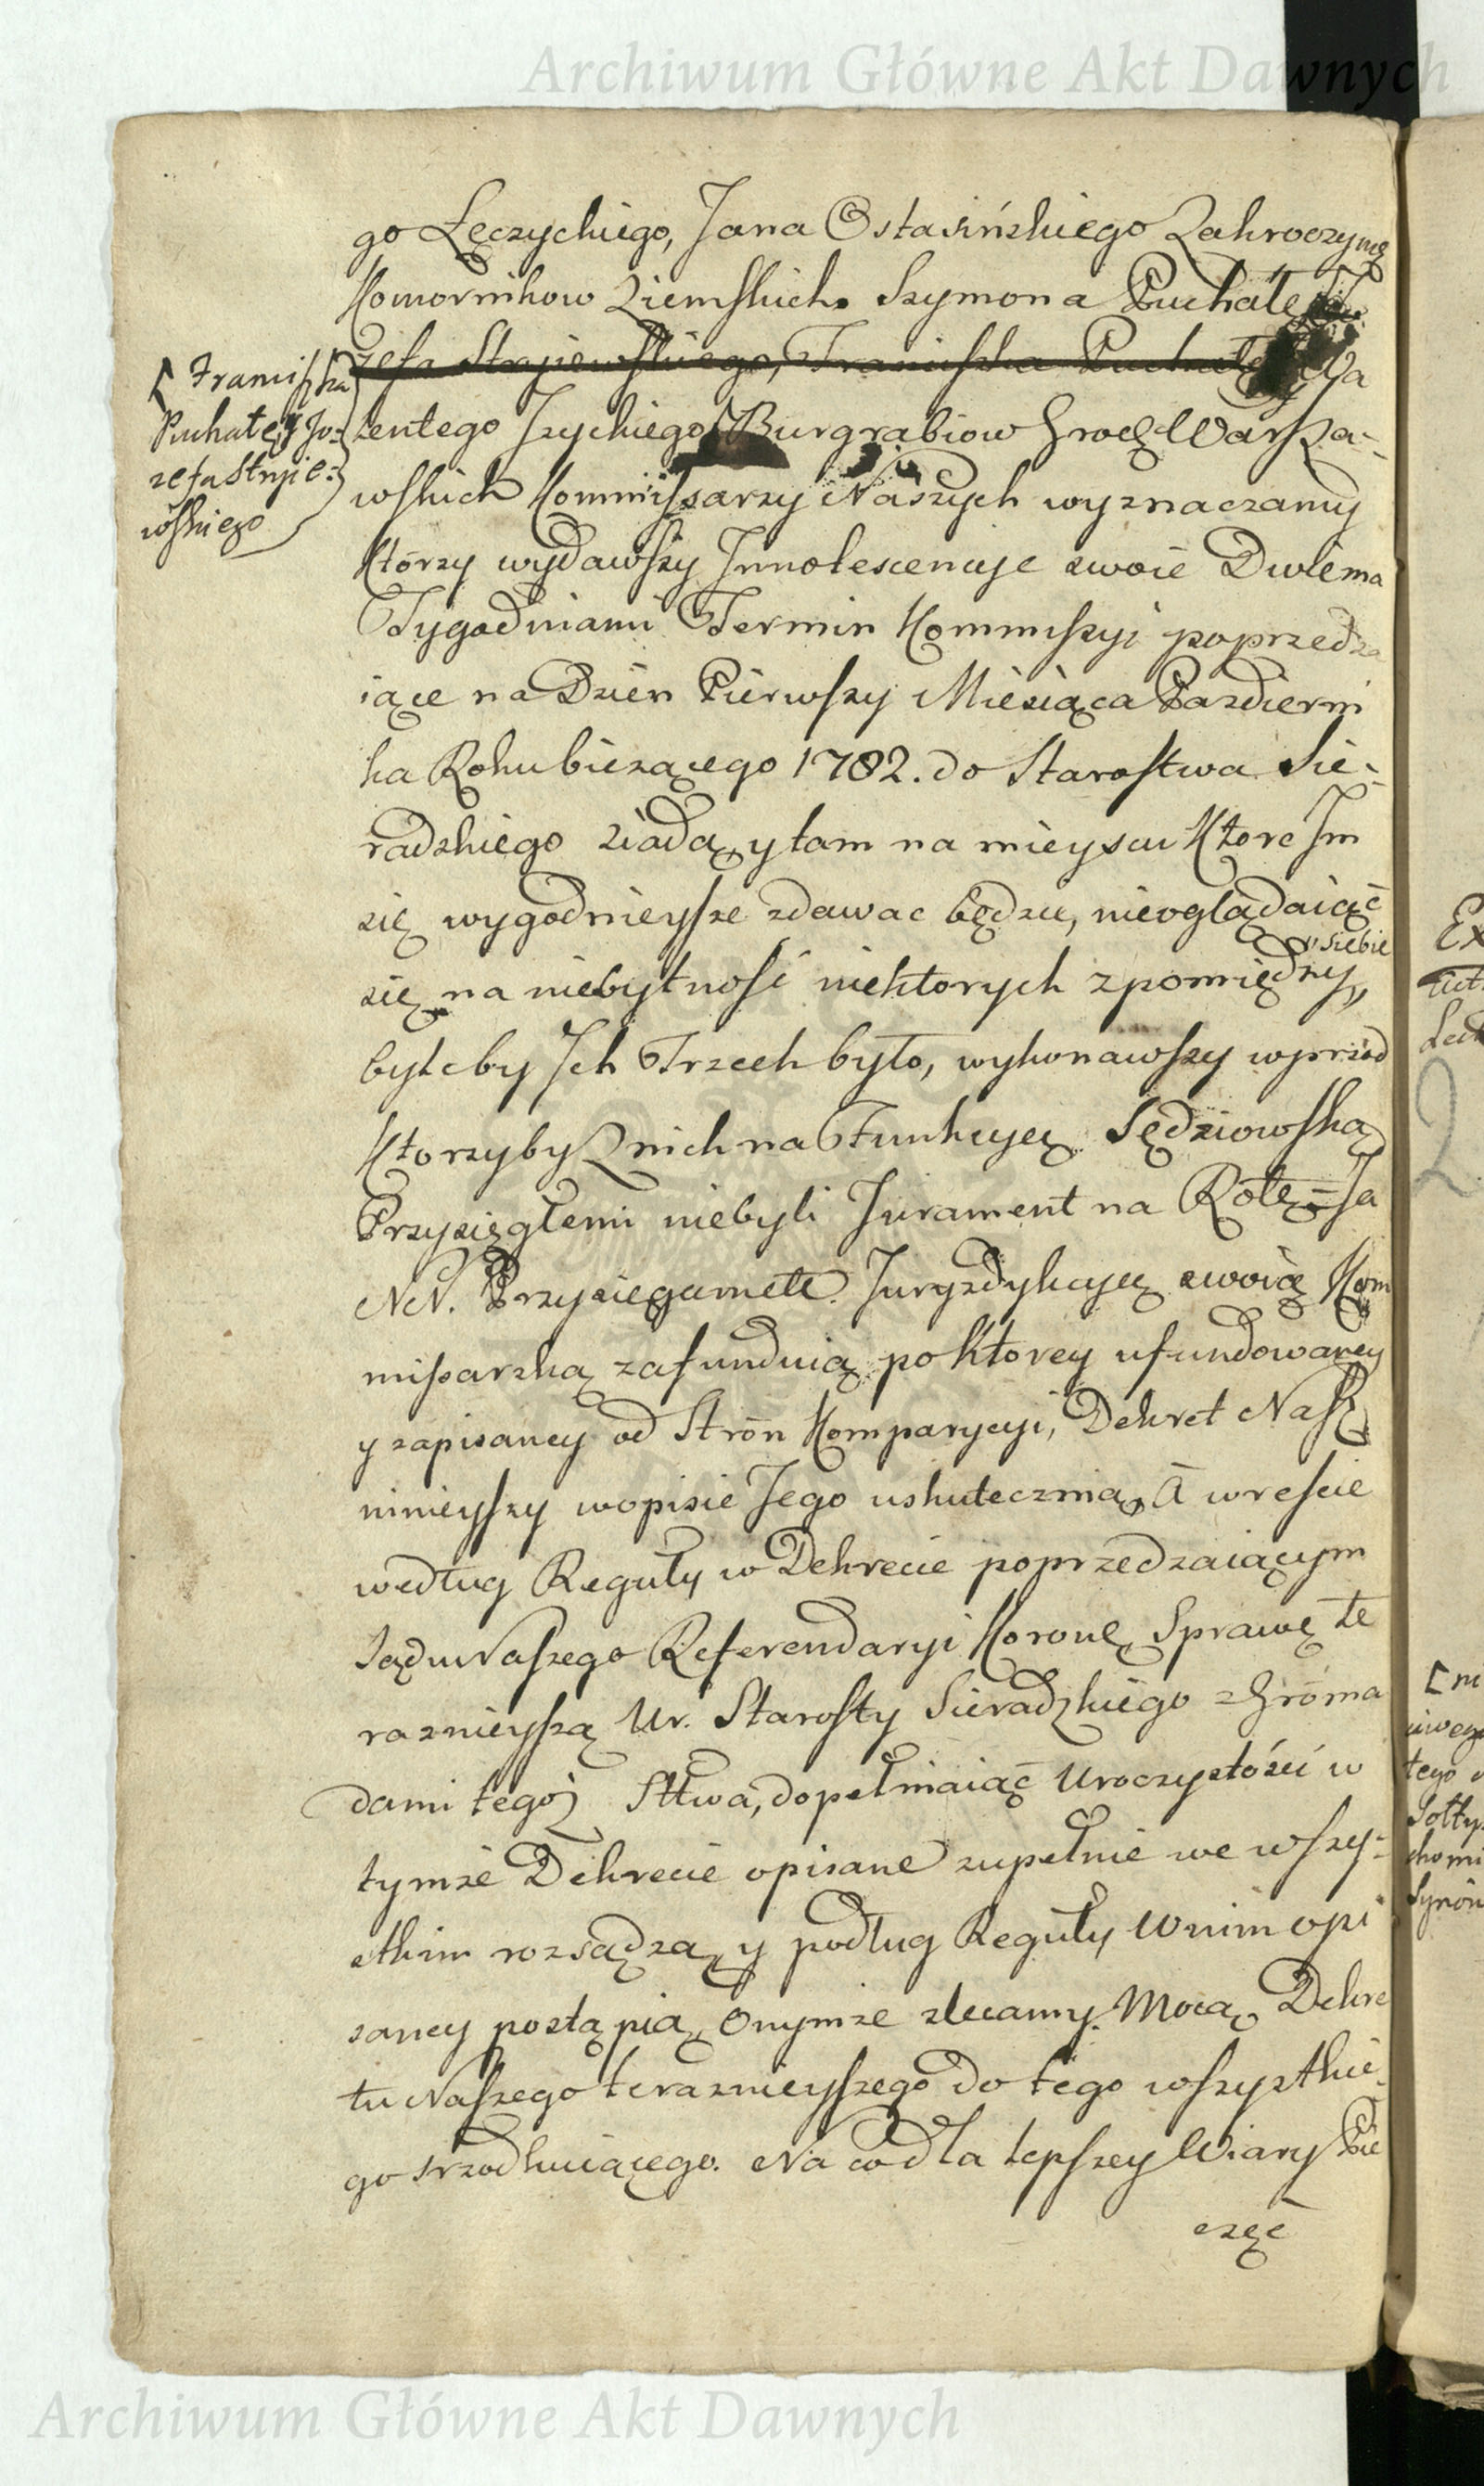 Archiwum Główne Akt Dawnych
go Łęczyckiego, Jana Ostasińskiego Zakroczymę
Komornikow Ziemskich. Szymona Puchałę
zefa Stryiewskiego, Franciszka Puchałę Wa
[Franciszka
Puchałę, y Jo=
zefa Stryie=
wskiego
lentego Izyckiego Burgrabiow Grodz Warsza-
wskich Kommissarzy Naszych wyznaczamy
Ktorzy wydawszy Innotescencye swoie Dwiema
Tygodniami Termin Kommissyi poprzedza
iące na Dzien Pierwszy Miesiąca Pazdierni
ka Roku bieżącego 1782. do Starostwa Sie-
radzkiego ziadą, y tam na mieyscu Ktore Im
się wygodnieysze zdawac będzie, nieoglądaiąc
się na niebytność niektorych z pomiędzy
siebie
byleby Ich Trzech było, wykonawszy wprzód
Ktorzyby z nich na Funkcyę Sędziowską
Przysięgłemi niebyli Jurament na Rotę = Ja
NN. Przysięgam etc. Juryzdykcyę swoię Kom
missarską zafunduią, po Ktorey ufundowaney
y zapisaney od Strón Komparycyi, Dekret Nasz
ninieyszy w opisie Jego uskutecznią, A wreście
według Reguły w Dekrecie poprzedzaiącym
Sądu Naszego Referendaryi Koronę Sprawę te
raznieyszą Ur. Starosty Sieradzkiego z Gróma
dami tegoż Sttwa, dopełniaiąc Uroczystości w
tymże Dekrecie opisane zupełnie we wszy=
stkim rozsądzą, y podług Reguły w nim opi
saney postąpią, Onymże zlecamy. Mocą Dekre
tu Naszego teraznieyszego do tego wszystkie-
go srzodkuiącego. Na co dla lepszey Wiary Pie
częć
Archiwum Główne Akt Dawnych